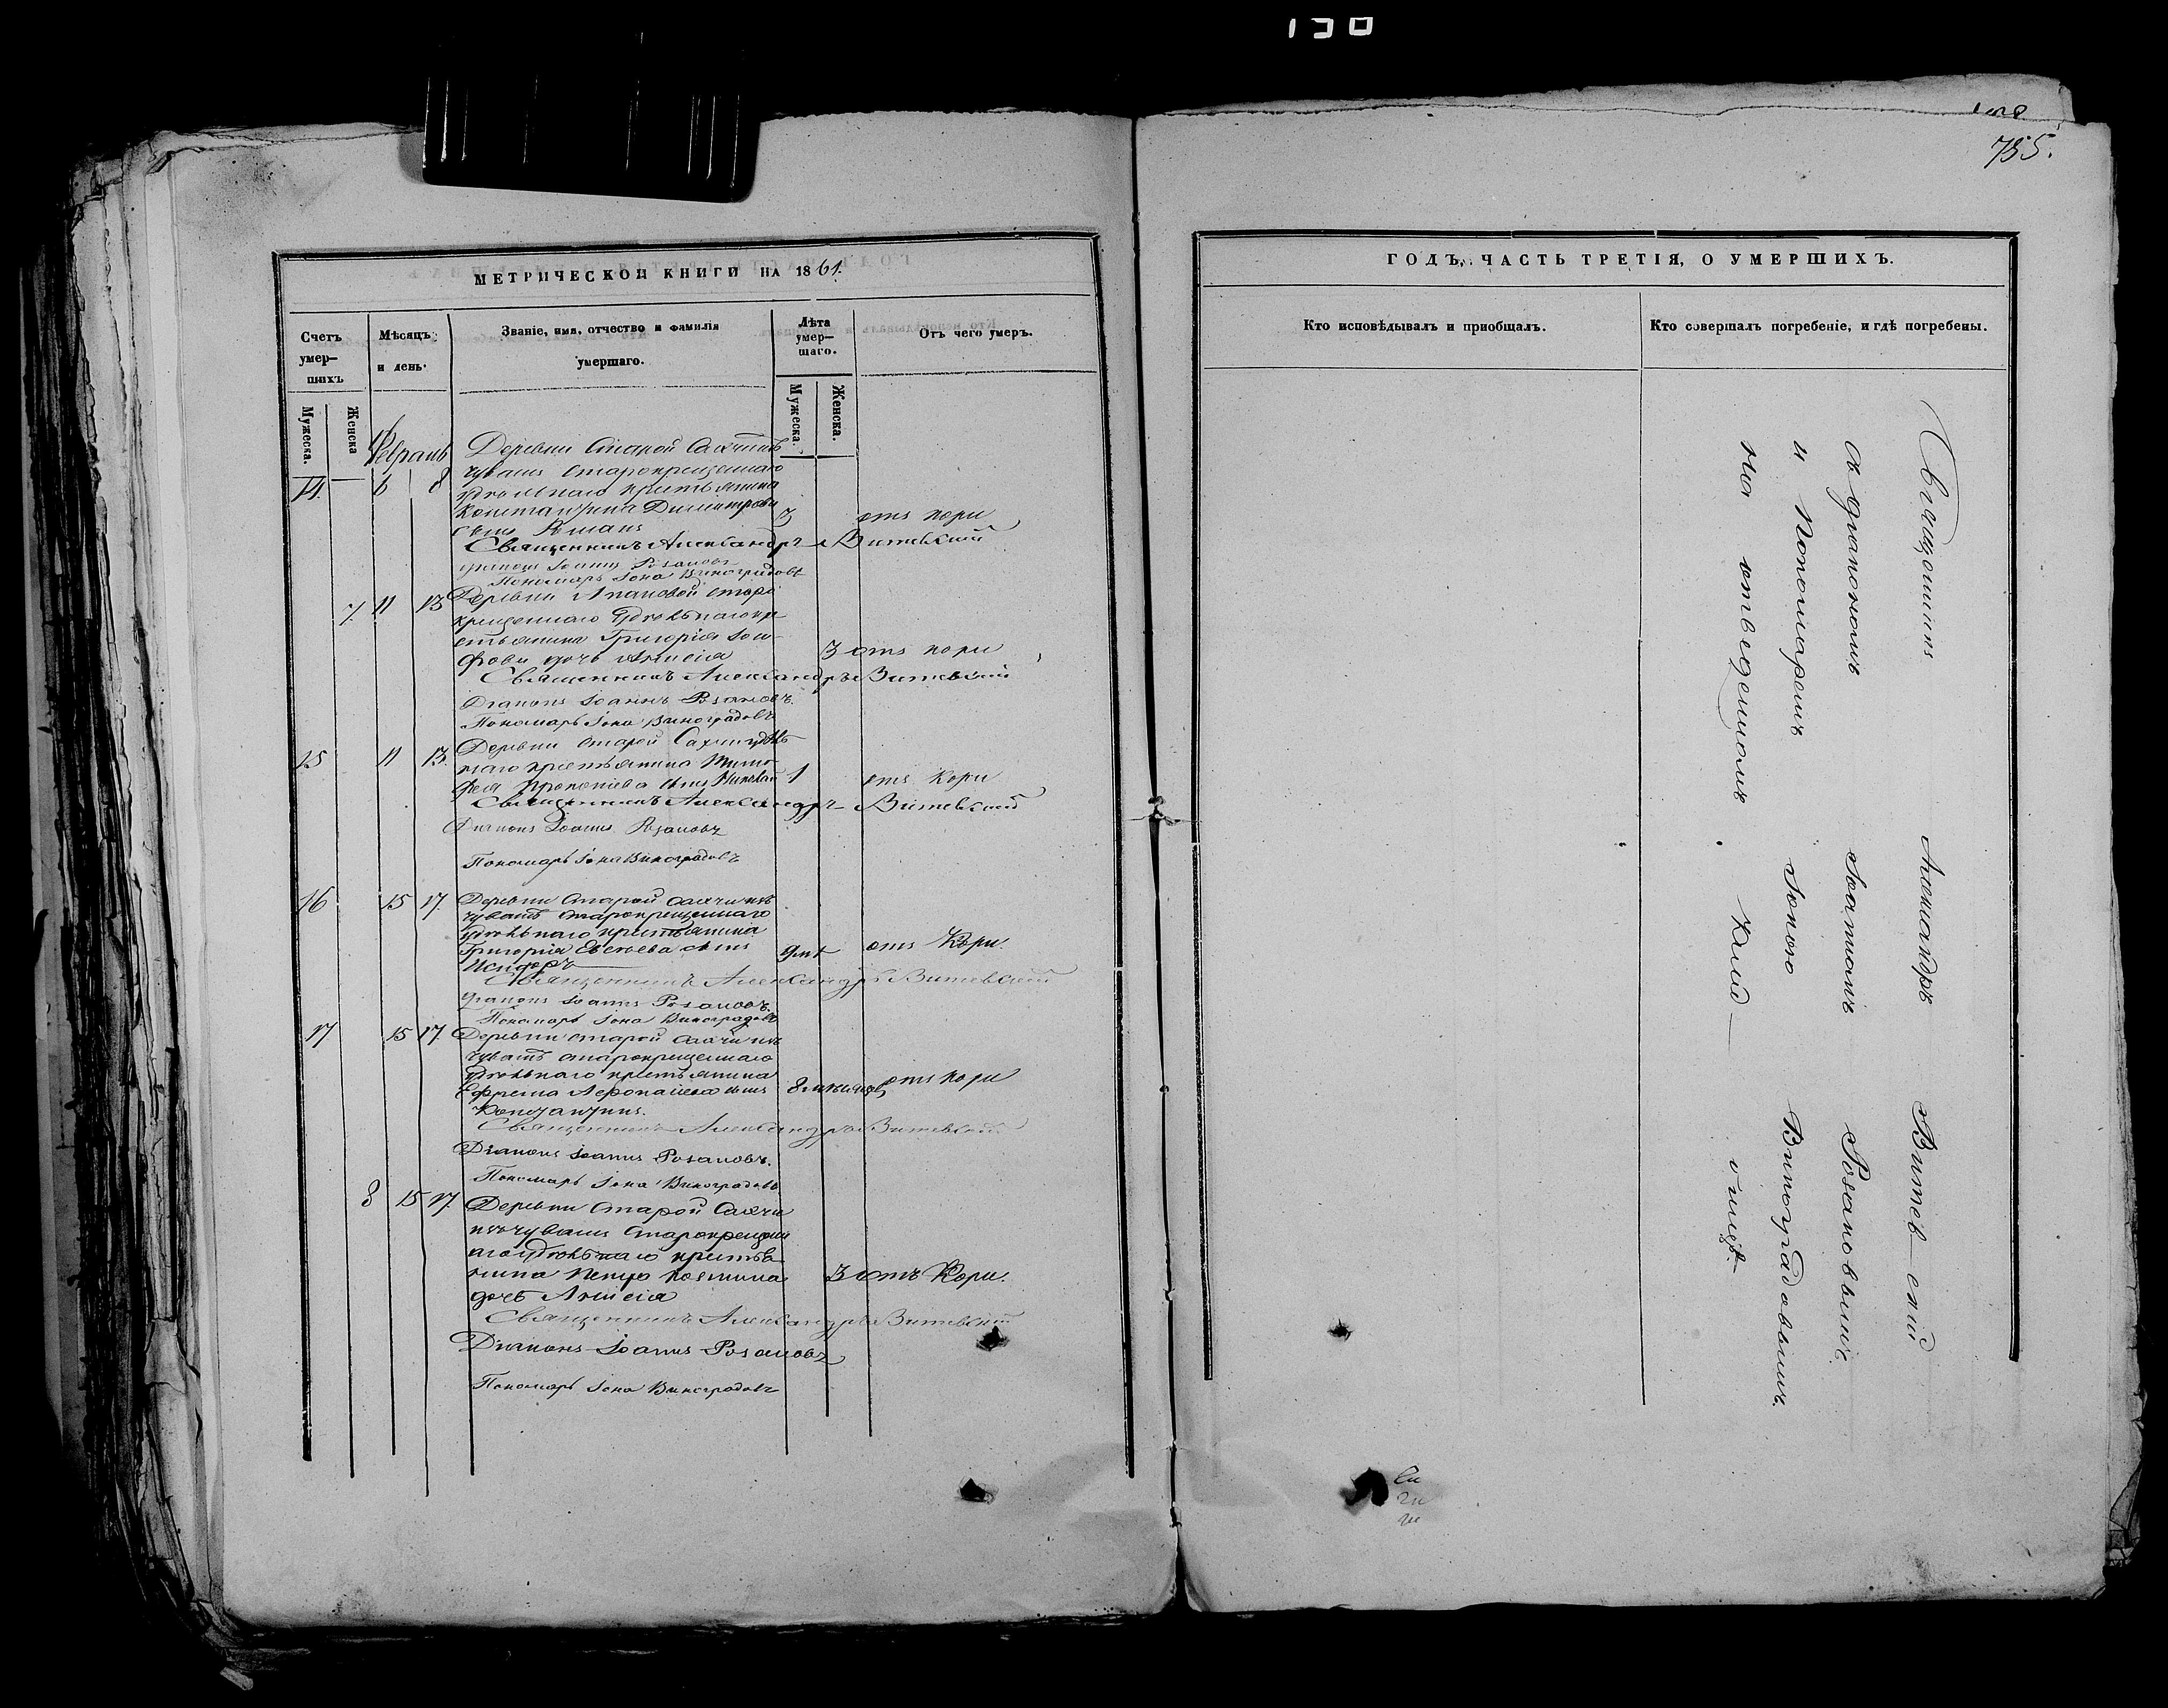 755.
МЕТРИЧЕСКОЙ КНИГИ НА 1861.
Счетъ умер-
шихъ
Мѣсяцъ
и день.
Званіе, имя, отчество и фамилія
умершаго.
Лѣта
умер-
шаго.
Отъ чего умеръ.
Мужеска.
Женска
Мужеска.
Женска.
Февраль
Деревни Старой
чувашъ старокрещеннаго
14 6 8 удѣльнаго крестьянина
Константина Димитріева
сынъ Романъ 3 отъ кори
Священникъ Александръ Витевскій
Діаконъ Іоаннъ Розановъ
Пономарь Іона Виноградовъ
7. 11 13 Деревни старо
крещеннаго удѣльнаго кре
стьянина Григорія
дочь Анисія 3 отъ кори
Священникъ Александръ Витевскій
Діаконъ Іоаннъ Розановъ.
Пономарь Іона Виноградовъ
Деревни Старой удѣль
15 11 13. наго крестьянина Тимо
фея Прокопіева сынъ 1 отъ кори
Священникъ Александръ Витевскій
Діаконъ Іоаннъ Розановъ
Пономарь Іона Виноградовъ
16 15 17. Деревни Старой
чувашъ старокрещеннаго
удѣльнаго крестьянина
Григорія сынъ отъ Кори.
Исидоръ
Священникъ Александръ Витевскій
Діаконъ Іоаннъ Розановъ.
Пономарь Іона Виноградовъ
17 15 17. Деревни Старой
чувашъ старокрещеннаго
удѣльнаго крестьянина
Ефрема сынъ 8 мѣсяцев отъ кори
Константинъ.
Священникъ Александръ Витевскій
Діаконъ Іоаннъ Розановъ.
Пономарь Іона Виноградовъ
8 15 17. Деревни Старой
чувашъ Старокрещенн
аго удѣльнаго крестья
нина Петра 3 отъ Кори.
дочь Анисія
Священникъ Александръ Витевскій
Діаконъ Іоаннъ Розановъ
Пономарь Іона Виноградовъ
ГОДЪ, ЧАСТЬ ТРЕТІЯ, О УМЕРШИХЪ.
Кто исповѣдывалъ и пріобщалъ.
Кто совершалъ погребеніе, и гдѣ погребены.
Священникъ Александръ Витевскій
съ діакономъ Іоанномъ Розановымъ
и Пономаремъ Іоною Виноградовымъ.
на отведенномъ кладбищѣ.